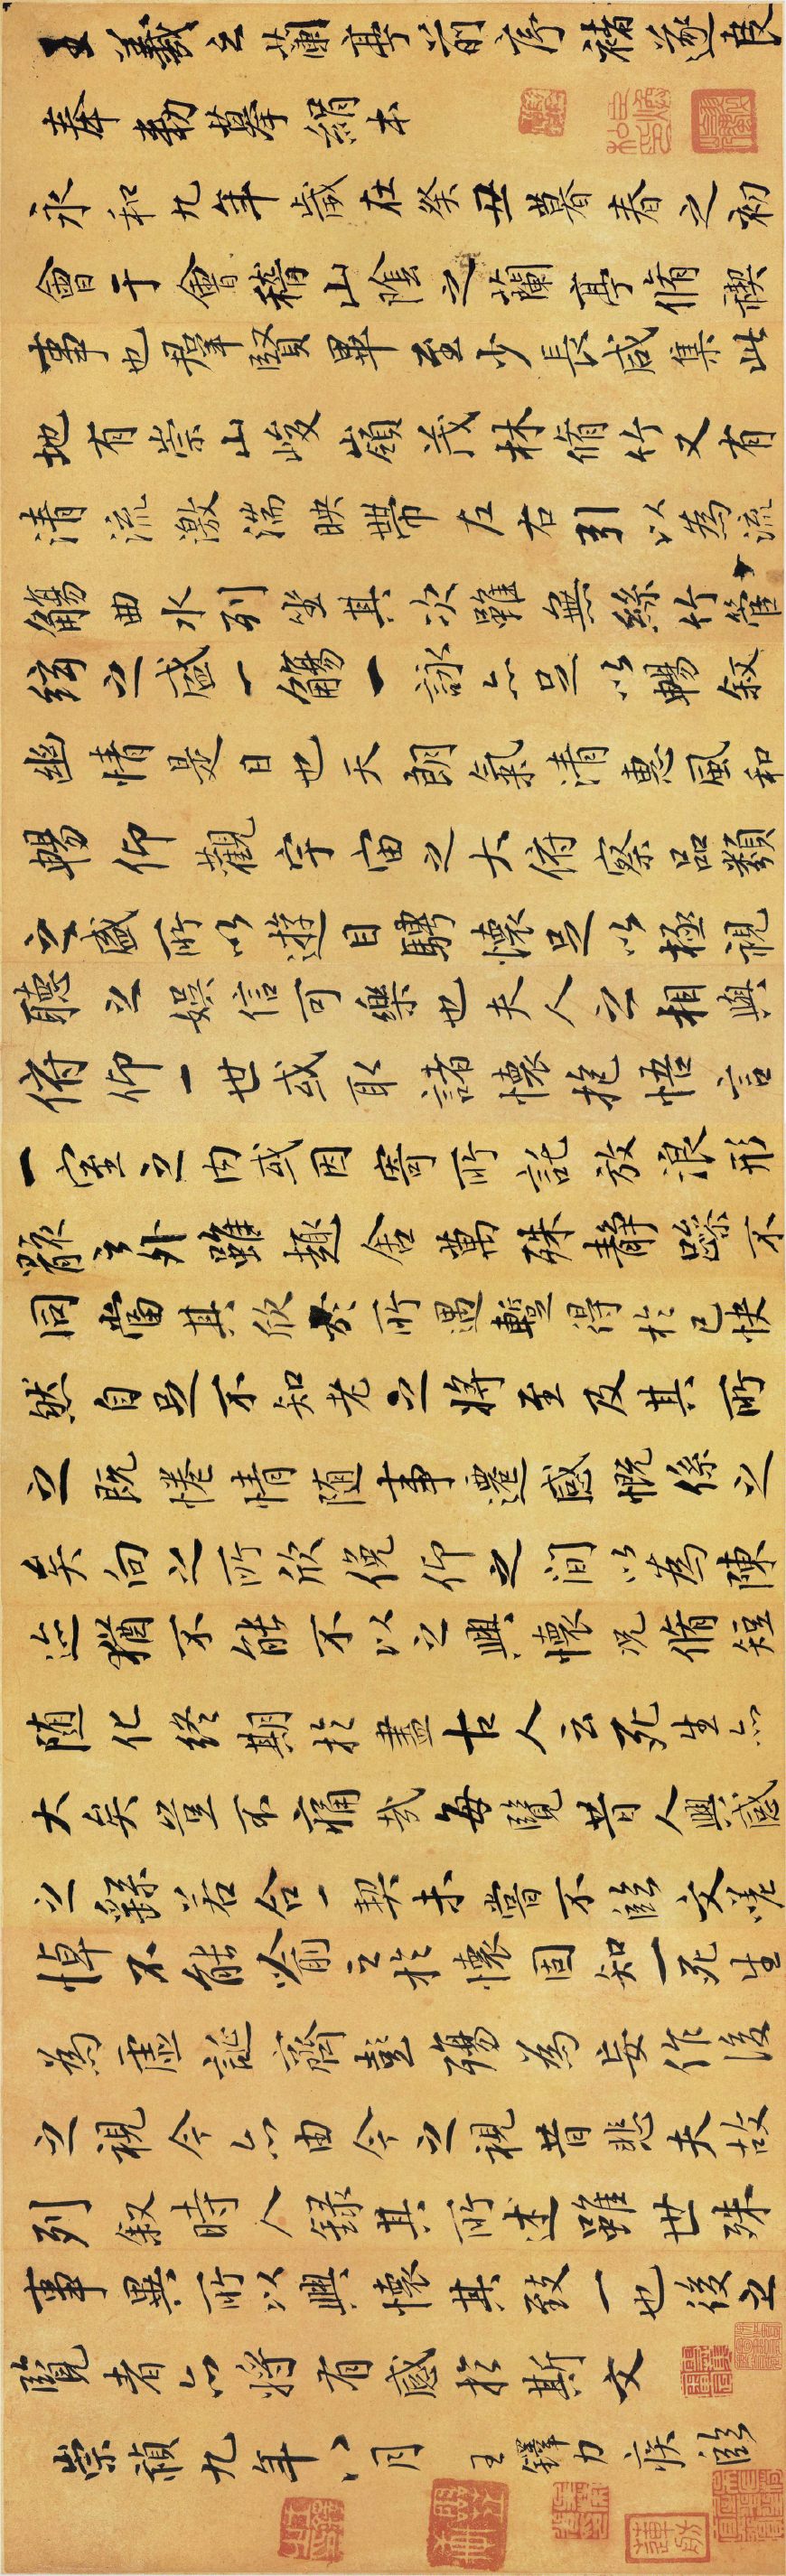 王羲之蘭亭前序褚遂良
奉勅摹絹本
永和九年歲在癸丑暮春之初
會于會稽山陰之蘭亭脩禊
事也群賢畢至少長咸集此
地有崇山峻嶺茂林脩竹又有
清流激湍映帶左右引以為流
觴曲水列坐其次雖無絲竹管
絃之盛一觴一詠亦足以暢叙
幽情是日也天朗氣清惠風和
暢仰觀宇宙之大俯察品類
之盛所以遊目騁懷足以極視
聽之娛信可樂也夫人之相與
俯仰一世或取諸懷抱悟言
一室之內或因寄所託放浪形
骸之外雖趣舍萬殊靜躁不
同當其欣於所遇暫得於己快
然自足不知老之將至及其所
之既惓情隨事遷感慨係之
矣向之所欣俛仰之間以為陳
迹猶不能不以之興懷況脩短
隨化終期於盡古人云死生亦
大矣豈不痛哉每覽昔人興感
之繇若合一契未嘗不臨文嗟
悼不能喻之於懷固知一死生
為虛誕齊彭殤為妄作後
之視今亦由今之視昔悲夫故
列叙時人錄其所述雖世殊
事異所以興懷其致一也後之
覽者亦將有感於斯文
崇禎九年八月 王鐸力疾臨